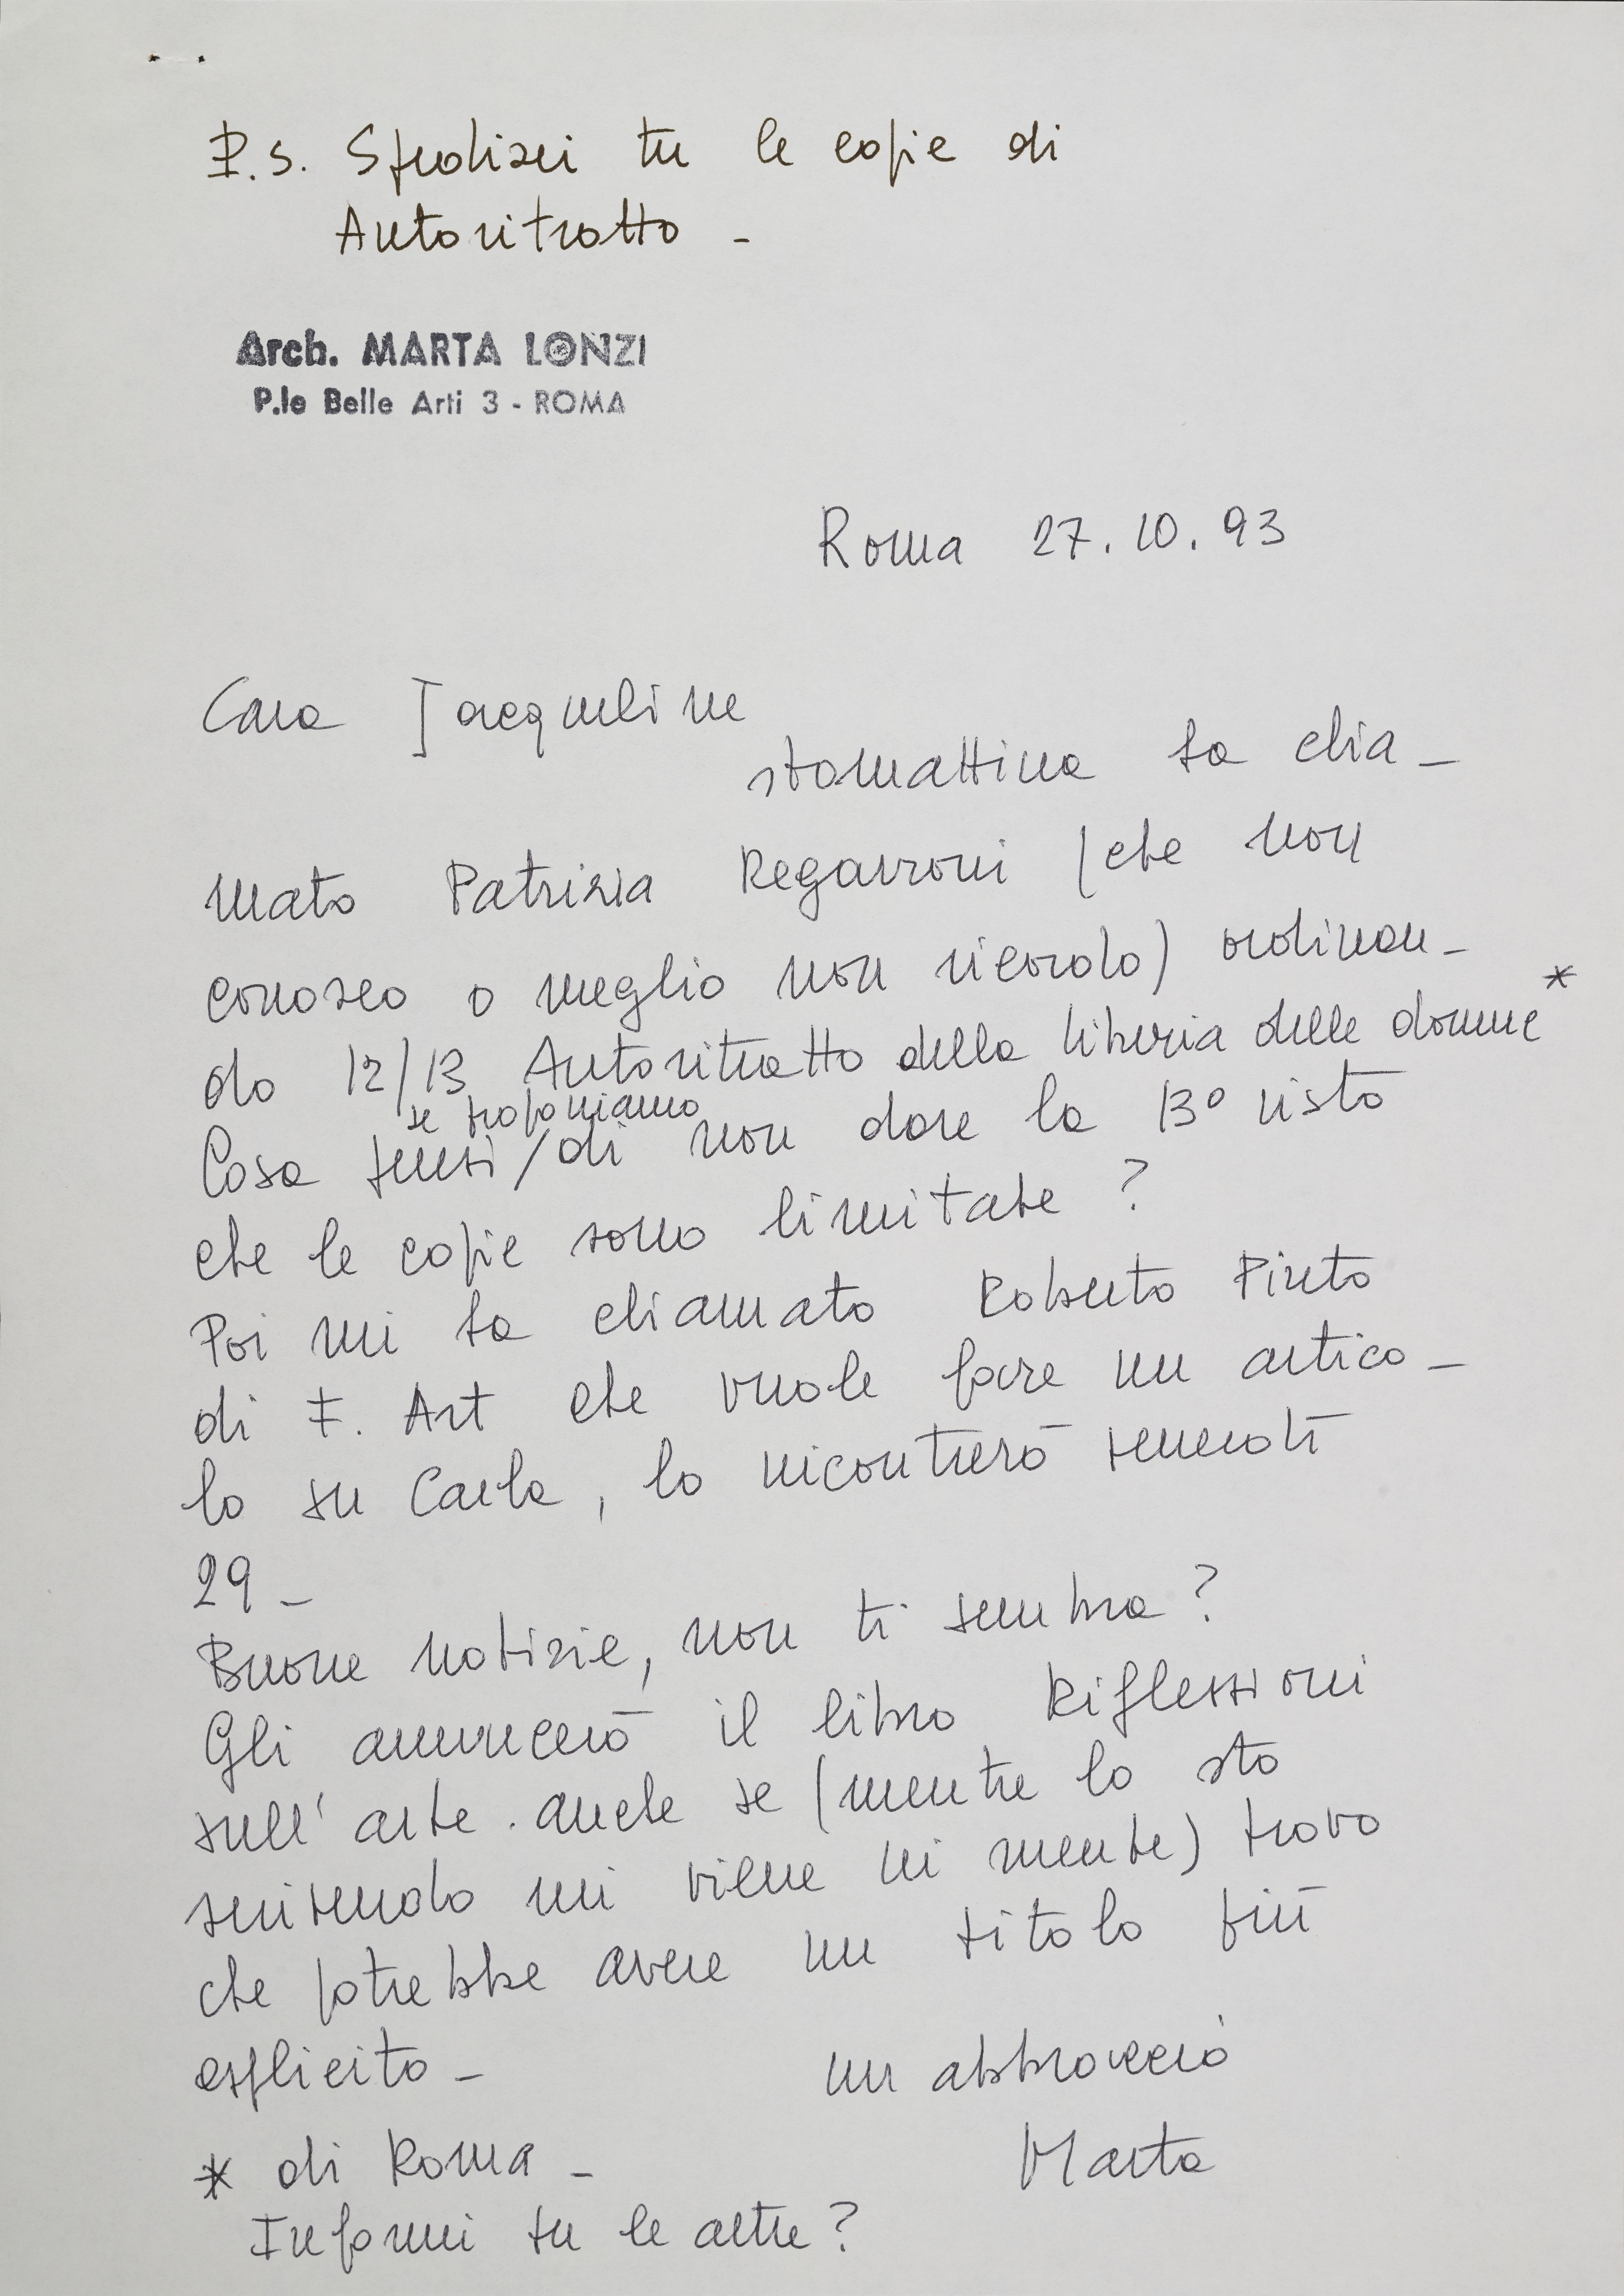 P.S. Spedisci tu le copie di
Autoritratto -
Arch. MARTA LONZI
P.le Belle Arti 3 - ROMA
Roma 27.10.93
Cara Jacqueline
stamattina ha chia-
mato Patrizia Regazzoni (che non
conosco o meglio non ricordo) ordinan-
do 12/13 Autoritratto della libreria delle donne *
se proponiamo
Cosa pensi / di non dare la 13° visto
che le copie sono limitate ?
Poi mi ha chiamato Roberto Pinto
di F. Art che vuole fare un artico-
lo su Carla, lo incontrerò venerdì
29 -
Buone notizie, non ti sembra ?
Gli annuncerò il libro Riflessioni
sull'arte. anche se (mentre lo sto
scrivendo mi viene in mente) trovo
che potrebbe avere un titolo più
esplicito -
un abbraccio
Marta
* di Roma -
Informi tu le altre ?